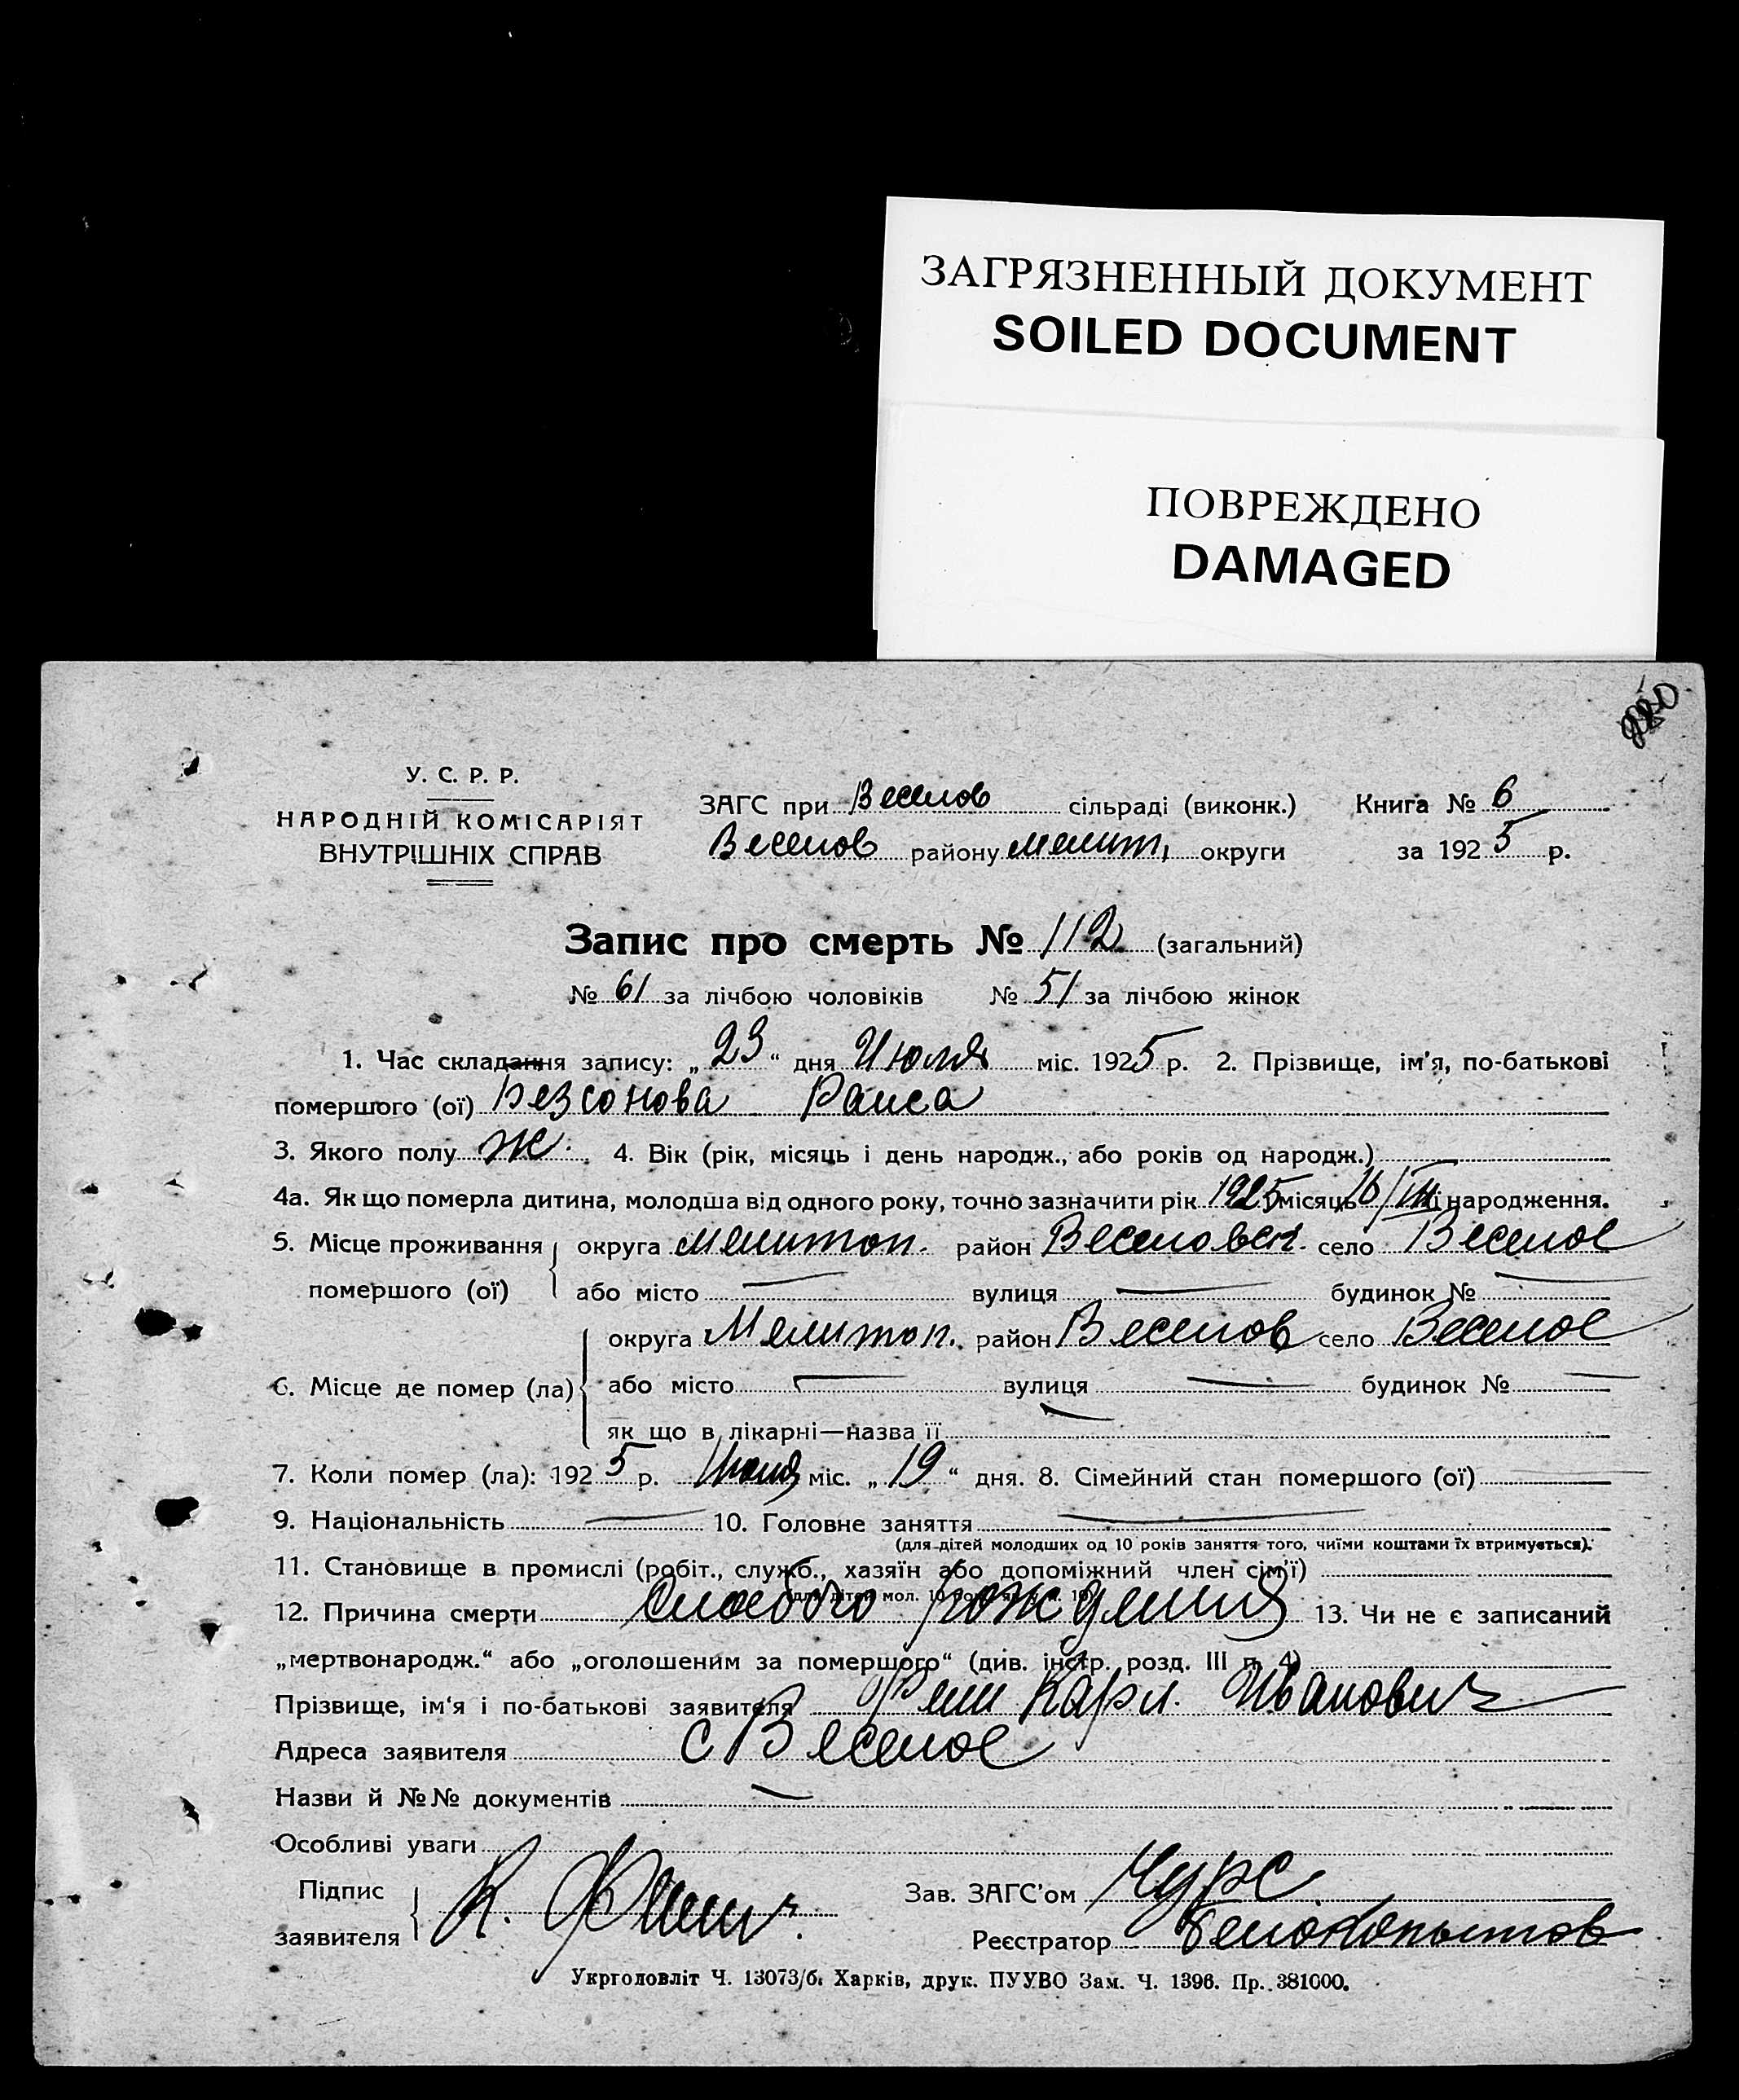 ЗАГРЯЗНЕННЫЙ ДОКУМЕНТ
SOILED DOCUMENT
ПОВРЕЖДЕНО
DAMAGED
У. С. Р. Р.
НАРОДНІЙ КОМІСАРІЯТ
ВНУТРІШНІХ СПРАВ
ЗАГС при Веселов сільраді (виконк.) Книга № 6
Веселов району Мелит, округи за 1925 р.
Запис про смерть № 112 (загальний)
№ 61 за лічбою чоловіків № 51 за лічбою жінок
1. Час складання запису: „ 23 “ дня Июля міс. 1925 р. 2. Прізвище, ім'я, по-батькові
помершого (ої) Безсонова Раиса
3. Якого полу ж. 4. Вік (рік, місяць і день народж., або років од народж.)
4а. Як що померла дитина, молодша від одного року, точно зазначити рік 1925 місяць 16/ народження.
5. Місце проживання помершого (ої) округа Мелитоп. район Веселовск. село Веселое
або місто — вулиця — будинок № —
6. Місце де помер (ла) округа Мелитоп. район Веселов село Веселое
або місто — вулиця — будинок № —
як що в лікарні—назва її —
7. Коли помер (ла): 1925 р. Июля міс. „ 19 “ дня. 8. Сімейний стан помершого (ої) —
9. Національність — 10. Головне заняття —
(для дітей молодших од 10 років заняття того, чиїми коштами їх втримується).
11. Становище в промислі (робіт., служб., хазяїн або допоміжний член сім'ї)
12. Причина смерти Слабого рождения 13. Чи не є записаний
„мертвонародж.“ або „оголошеним за помершого“ (див. інстр. розд. III п. 4)
Прізвище, ім'я і по-батькові заявителя Карл Иванович
Адреса заявителя с Веселое
Назви й №№ документів —
Особливі уваги
Підпис заявителя К. Зав. ЗАГС'ом Чурс
Реєстратор Белокопытов
Укрголовліт Ч. 13073/б. Харків, друк. ПУУВО Зам. Ч. 1396. Пр. 381000.